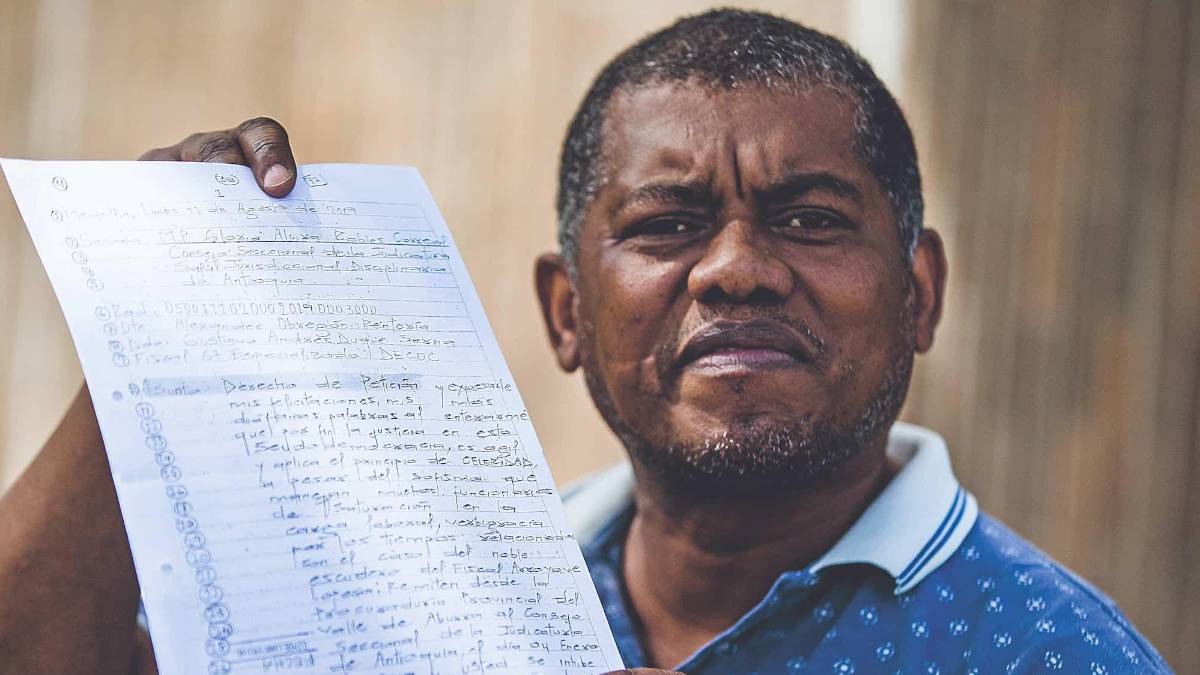 1
Medellín, Lunes 27 de Agosto de 2019
Señora: M.P. Gloria Alcira Robles Correal
Consejo Seccional de la Judicatura
Sala Jurisdiccional Disciplinaria
de Antioquia
Rad: 050011102000201900030
Dte. Alexander Obregón Rentería
Ddo: Gustavo Andrés Duque Serna
Fiscal 67 Especializado DECOC
Asunto: Derecho de Petición y expresarle
mis felicitaciones, mis más
diáfanas palabras al enterarme
que por fin la justicia en esta
seudodemocracia, es ágil
y aplica el principio de CELERIDAD,
a pesar del sofisma que
manejan muchos funcionarios
de saturación en la
carga laboral, verbigracia
por los tiempos relacionados
con el caso del noble
escudero del Fiscal Arroyave
Remiten desde la
Procuraduría Provincial del
Valle de Aburra al Consejo
Seccional de la Judicatura
de Antioquia, el día 04 Enero
usted se inhibe